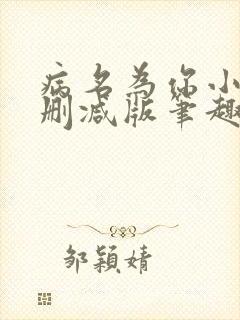 病名为你小
删减版笔趣
邹颖婧